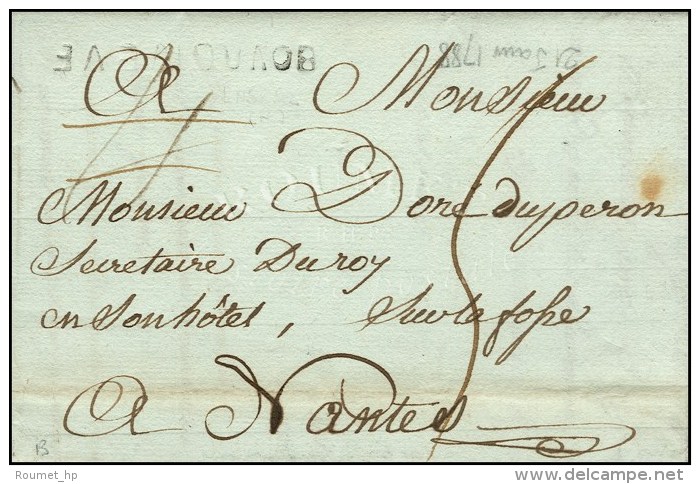 BOURDINGVE
21 Janv 1788
A Monsieur
Monsieur Doré duperon
Secretaire Du roy
en Son hôtel, Sur la fosse
A Nantes
B
Roumet_hp
© delcampe.net